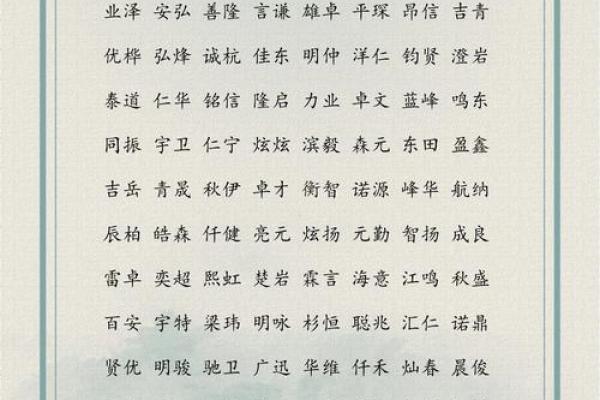 业泽 安弘 善隆 言谦 雄卓 平琛 昂信 吉青
优桦 弘烽 诚杭 佳东 明仲 洋仁 钧贤 澄岩
泰道 仁华 铭信 隆启 力业 卓文 蓝峰 鸣东
同振 宇卫 仁宁 炫炫 滨毅 森元 东田 盈鑫
吉岳 青晟 秋伊 卓才 衡智 诺源 峰华 航纳
辰柏 皓森 仟健 亮元 炫扬 元勤 智扬 成良
雷卓 奕超 熙虹 楚岩 霖言 海意 江鸣 秋盛
百安 宇特 梁玮 明咏 杉恒 聪兆 汇仁 诺鼎
贤优 明骏 驰卫 广迅 华维 仟禾 灿春 晨俊